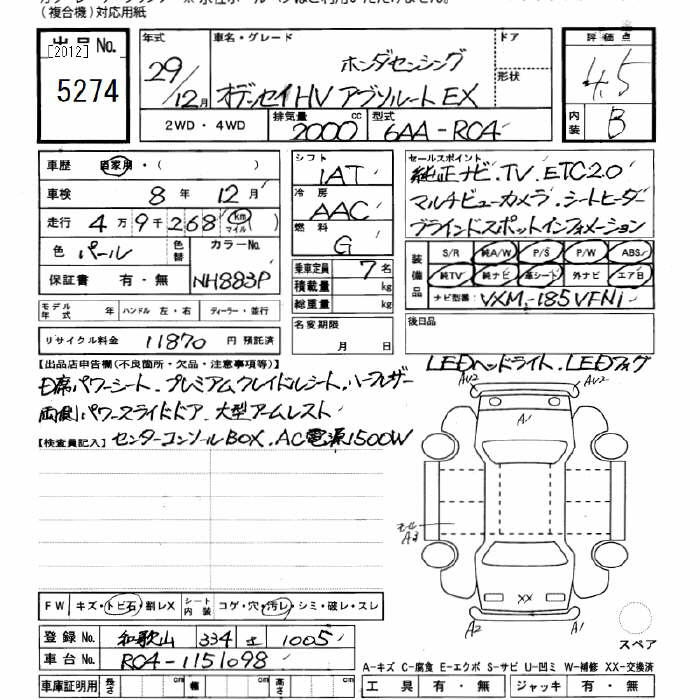 (複合機)対応用紙
出品No.
[2012]
5274
年式
29/12月
車名・グレード
ホンダセンシング
オデッセイHV アブソルートEX
ドア
形状
評価点
4.5
内装
B
2WD・4WD
排気量
2000
cc
型式
6AA-RC4
車歴
自家用・( )
車検
8年 12月
走行
4万9千268(km マイル)
色
パール
色替
カラーNo.
NH883P
保証書 有・無
シフト
IAT
冷房
AAC
燃料
G
乗車定員 7名
積載量 kg
総重量 kg
名変期限
月 日
セールスポイント
純正ナビ.TV.ETC2.0
マルチビューカメラ.シートヒーター
ブラインドスポットインフォメーション
装備品
S/R 純A/W P/S P/W ABS
純TV 純ナビ 革シート 外ナビ エアB
ナビ型番: VXM-185VFNi
後日品
モデル年式 年 ハンドル 左・右 ディーラー・並行
リサイクル料金 11870 円 預託済
【出品店申告欄(不良箇所・欠品・注意事項等)】
LEDヘッドライト.LEDフォグ
D席パワーシート.プレミアムクレイドルシート.ハーフレザー
両側パワースライドドア.大型アームレスト
【検査員記入】
センターコンソールBOX.AC電源1500W
AU2
AU2
A1
A3
XX
A2
A1
スペア
FW キズ・トビ石・割レX
シート内装 コゲ・穴・汚レ・シミ・破レ・スレ
登録No. 和歌山 334 さ 1005
車台No. RC4-1151098
A-キズ C-腐食 E-エクボ S-サビ U-凹ミ W-補修 XX-交換済
車庫証明用 長さ cm 幅 cm 高さ cm
工具 有・無 ジャッキ 有・無